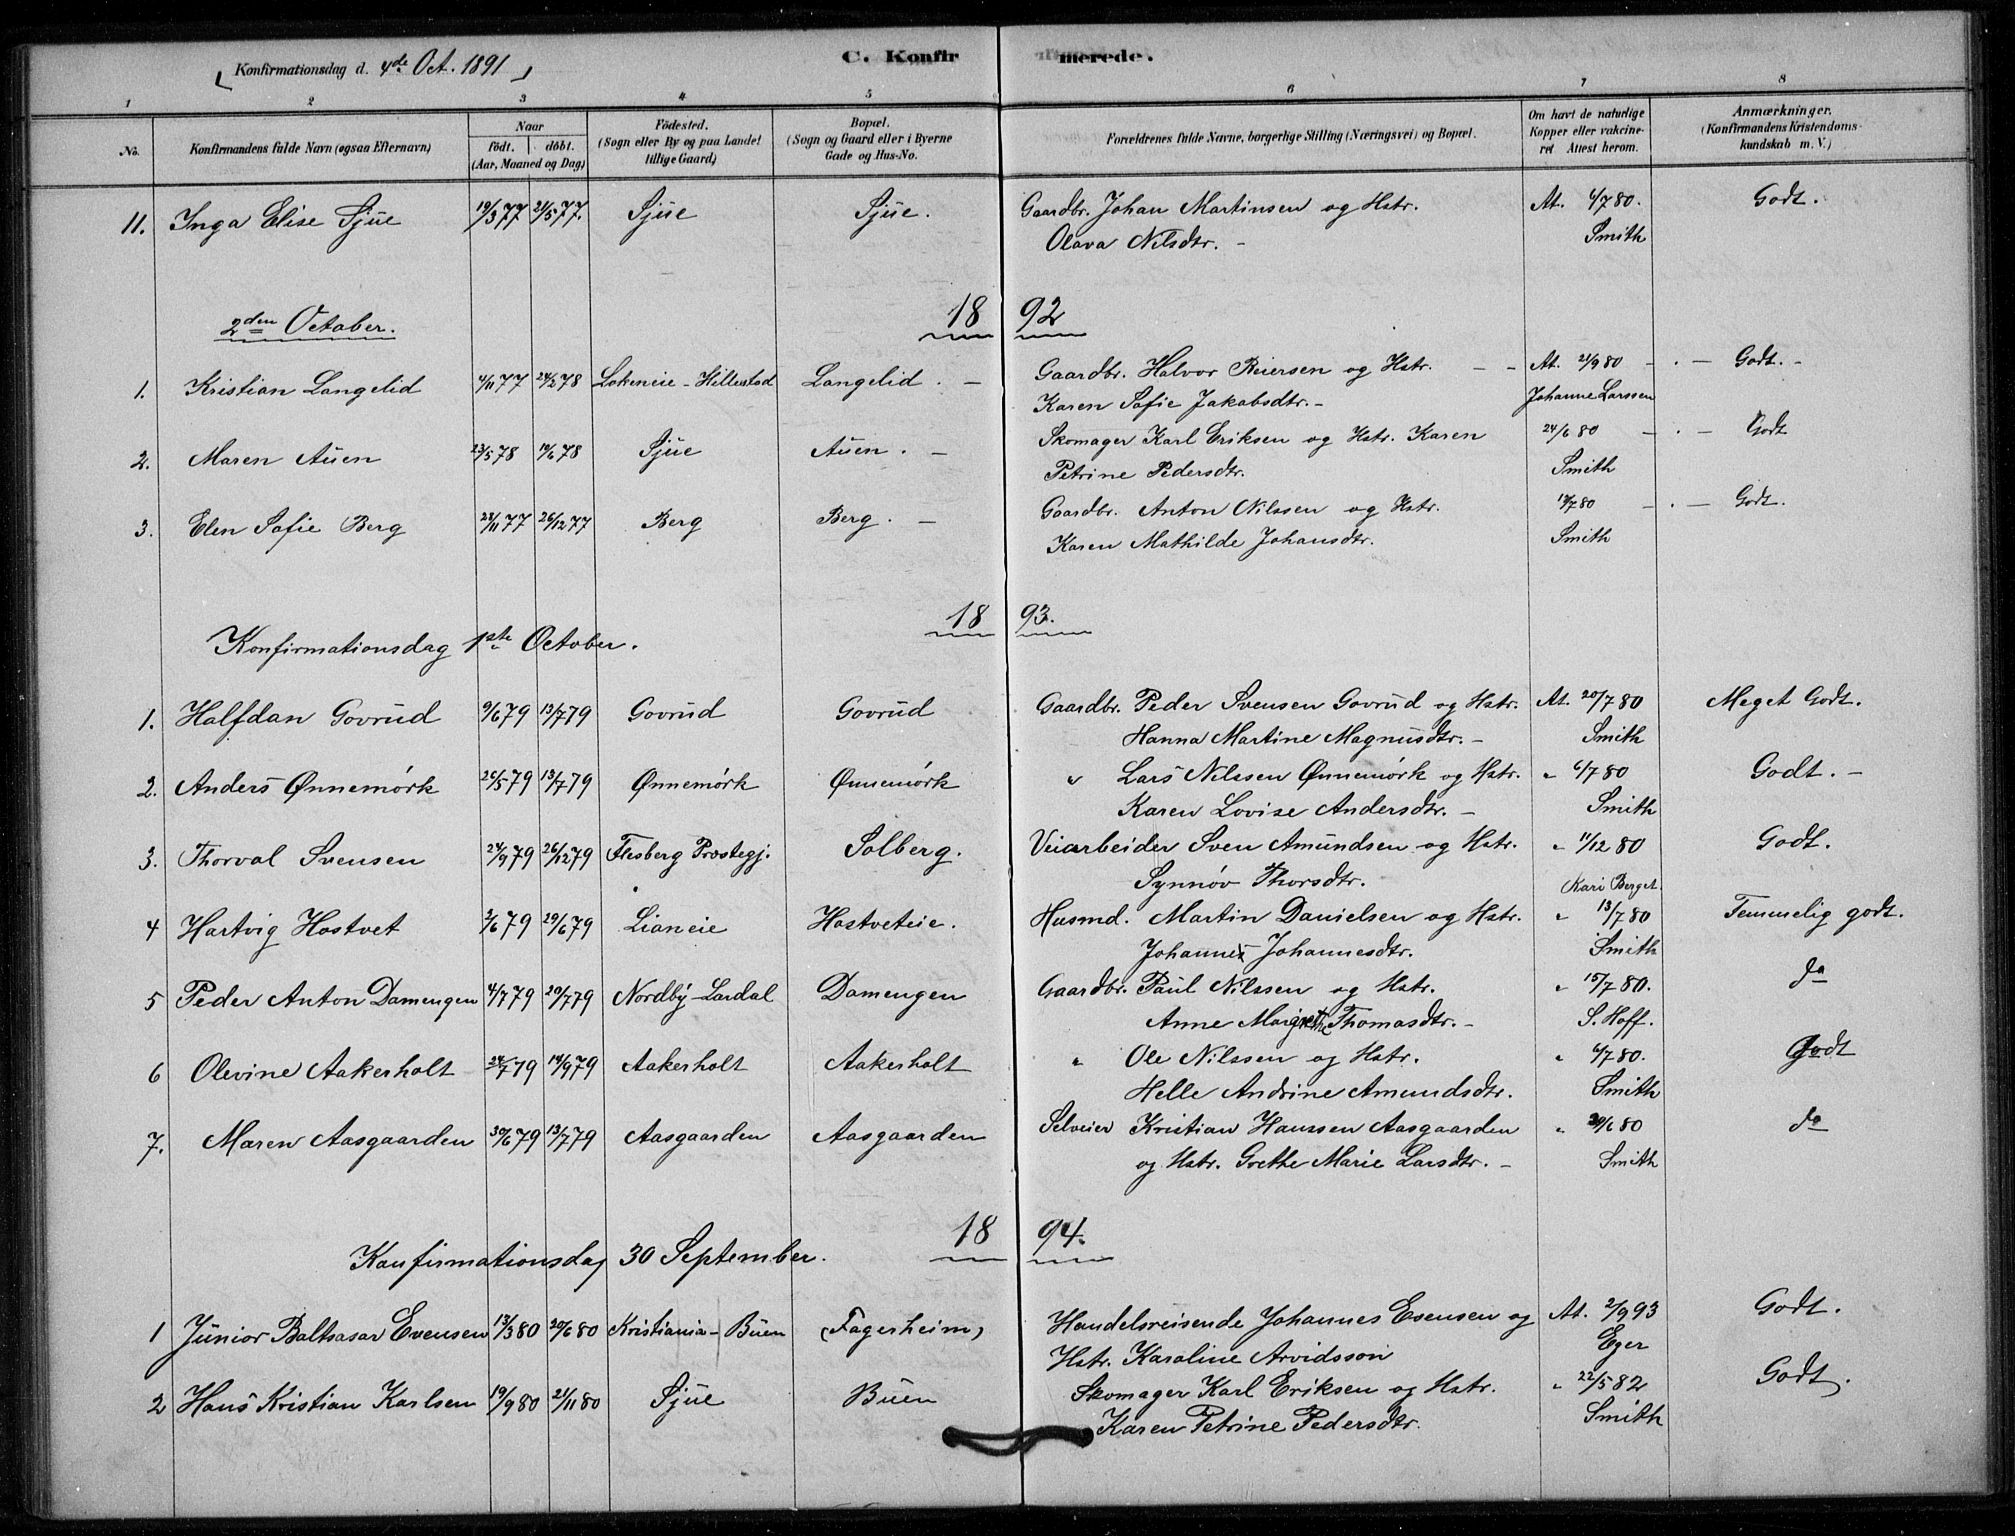 Konfirmationsdag d. 4de Oct. 1891
C. Konfirmerede.
1 2 3 4 5 6 7 8
No. Konfirmandens fulde Navn (ogsaa Efternavn) Naar født. døbt. (Aar, Maaned og Dag) Fødested. (Sogn eller By og paa Landet tillige Gaard) Bopæl. (Sogn og Gaard eller i Byerne Gade og Hus-No. Forældrenes fulde Navne, borgerlige Stilling (Næringsvei) og Bopæl. Om havt de naturlige Kopper eller vakcineret Attest herom. Anmærkninger. (Konfirmandens Kristendomskundskab m. V.)
11. Inga Elise Sjue 19/3 77 21/5 77. Sjue Sjue. Gaardbr. Johan Martinsen og Hstr. At. 6/7 80. Godt.
Olava Nilsdtr. - Smith
2den October. 1892
1. Kristian Langelid 4/11 77 24/2 78 Lokeneie - Hillestad Langelid. - Gaardbr. Halvor Reiersen og Hstr. - - At. 21/9 80 - . - Godt. -
Karen Sofie Jakobsdtr. - Johanne Larssen
2. Maren Auen 23/5 78 10/6 78 Sjue Auen. - Skomager Karl Eriksen og Hstr. Karen 24/6 80 - . - Godt
Petrine Pedersdtr. Smith
3. Elen Sofie Berg 28/11 77 26/12 77 Berg Berg. - Gaardbr. Anton Nilssen og Hstr. 12/7 80 - . - Godt.
Karen Mathilde Johansdtr. Smith
1893.
Konfirmationsdag 1ste October.
1. Halfdan Govrud 9/6 79 13/7 79 Govrud Govrud Gaardbr. Peder Svensen Govrud og Hstr. At. 20/7 80 Meget Godt.
Hanna Martine Magnusdtr. - Smith
2. Anders Ønnemørk 26/5 79 13/7 79 Ønnemørk Ønnemørk " Lars Nilssen Ønnemørk og Hstr. " 6/7 80 Godt. -
Karen Lovise Andersdtr. - Smith
3. Thorval Svensen 24/9 79 26/12 79 Flesberg Prostegj. Solberg. Veiarbeider Sven Amundsen og Hstr. " 11/12 80 Godt.
Synnøv Thorsdtr. Kari Berget.
4 Hartvig Hostvet 2/6 79 29/6 79 Lianeie Hostveteie. Husmd. Martin Danielsen og Hstr. " 13/7 80 Temmelig godt.
Johanne Johannesdtr. Smith
5 Peder Anton Damengen 4/7 79 20/7 79 Nordby - Lardal Damengen Gaardbr. Paul Nilssen og Hstr. " 15/7 80. do
Anne Margrethe Thomasdtr. - S. Hoff.
6 Olevine Aakerholt 24/7 79 14/9 79 Aakerholt Aakerholt " Ole Nilssen og Hstr. " 6/7 80. Godt
Helle Andrine Amundsdtr. Smith
7. Maren Aasgaarden 30/6 79 13/7 79 Aasgaarden Aasgaarden Selveier Kristian Hanssen Aasgaarden " 29/6 80 do
og Hstr. Grethe Marie Larsdtr. - Smith
1894.
Konfirmationsdag 30 September.
1 Junior Baltsasar Evensen 13/3 80 20/6 80 Kristiania - Buen (Fagerheim) Handelsreisende Johannes Evensen og At. 2/9 93 Godt.
Hstr. Karoline Arvidsson Eger
2 Hans Kristian Karlsen 19/9 80 21/11 80 Sjue Buen Skomager Karl Eriksen og Hstr. " 22/5 82 Godt.
Karen Petrine Pedersdtr. Smith